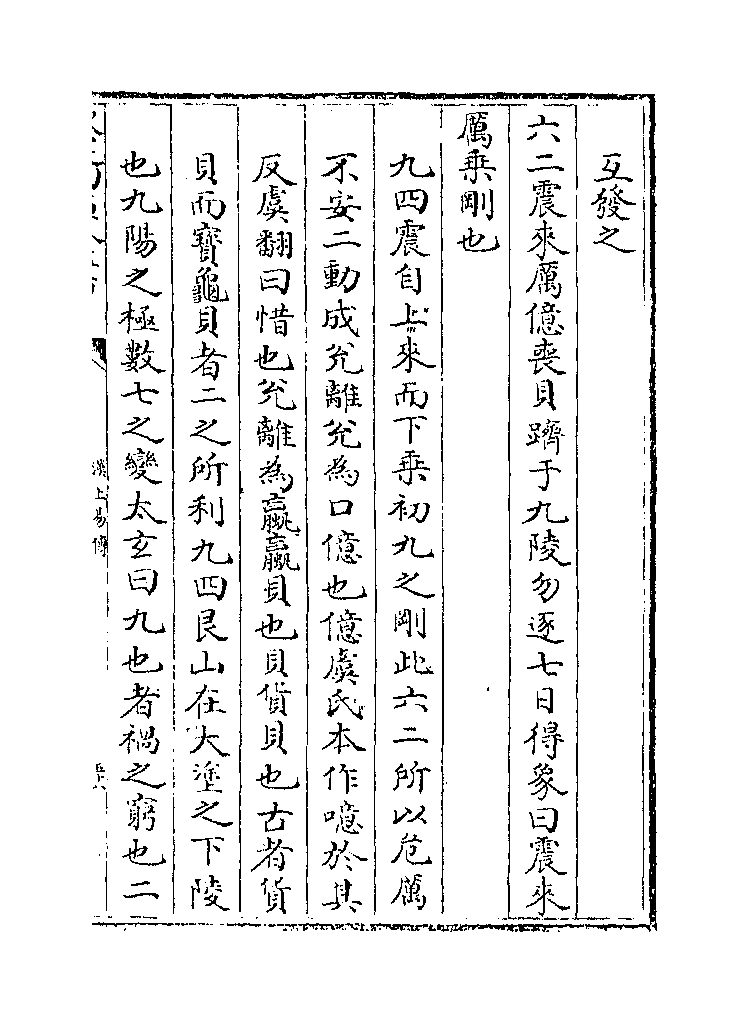 互發之
六二震來厲億喪貝躋于九陵勿逐七日得象曰震來
厲乗剛也
九四震自上來而下乗初九之剛此六二所以危厲
不安二動成兊離兊為口億也億虞氏本作噫於其
反虞翻曰惜也兊離為蠃蠃貝也貝貨貝也古者貨
貝而寳龜貝者二之所利九四艮山在大塗之下陵
也九陽之極數七之變太玄曰九也者禍之窮也二
漢上易傳